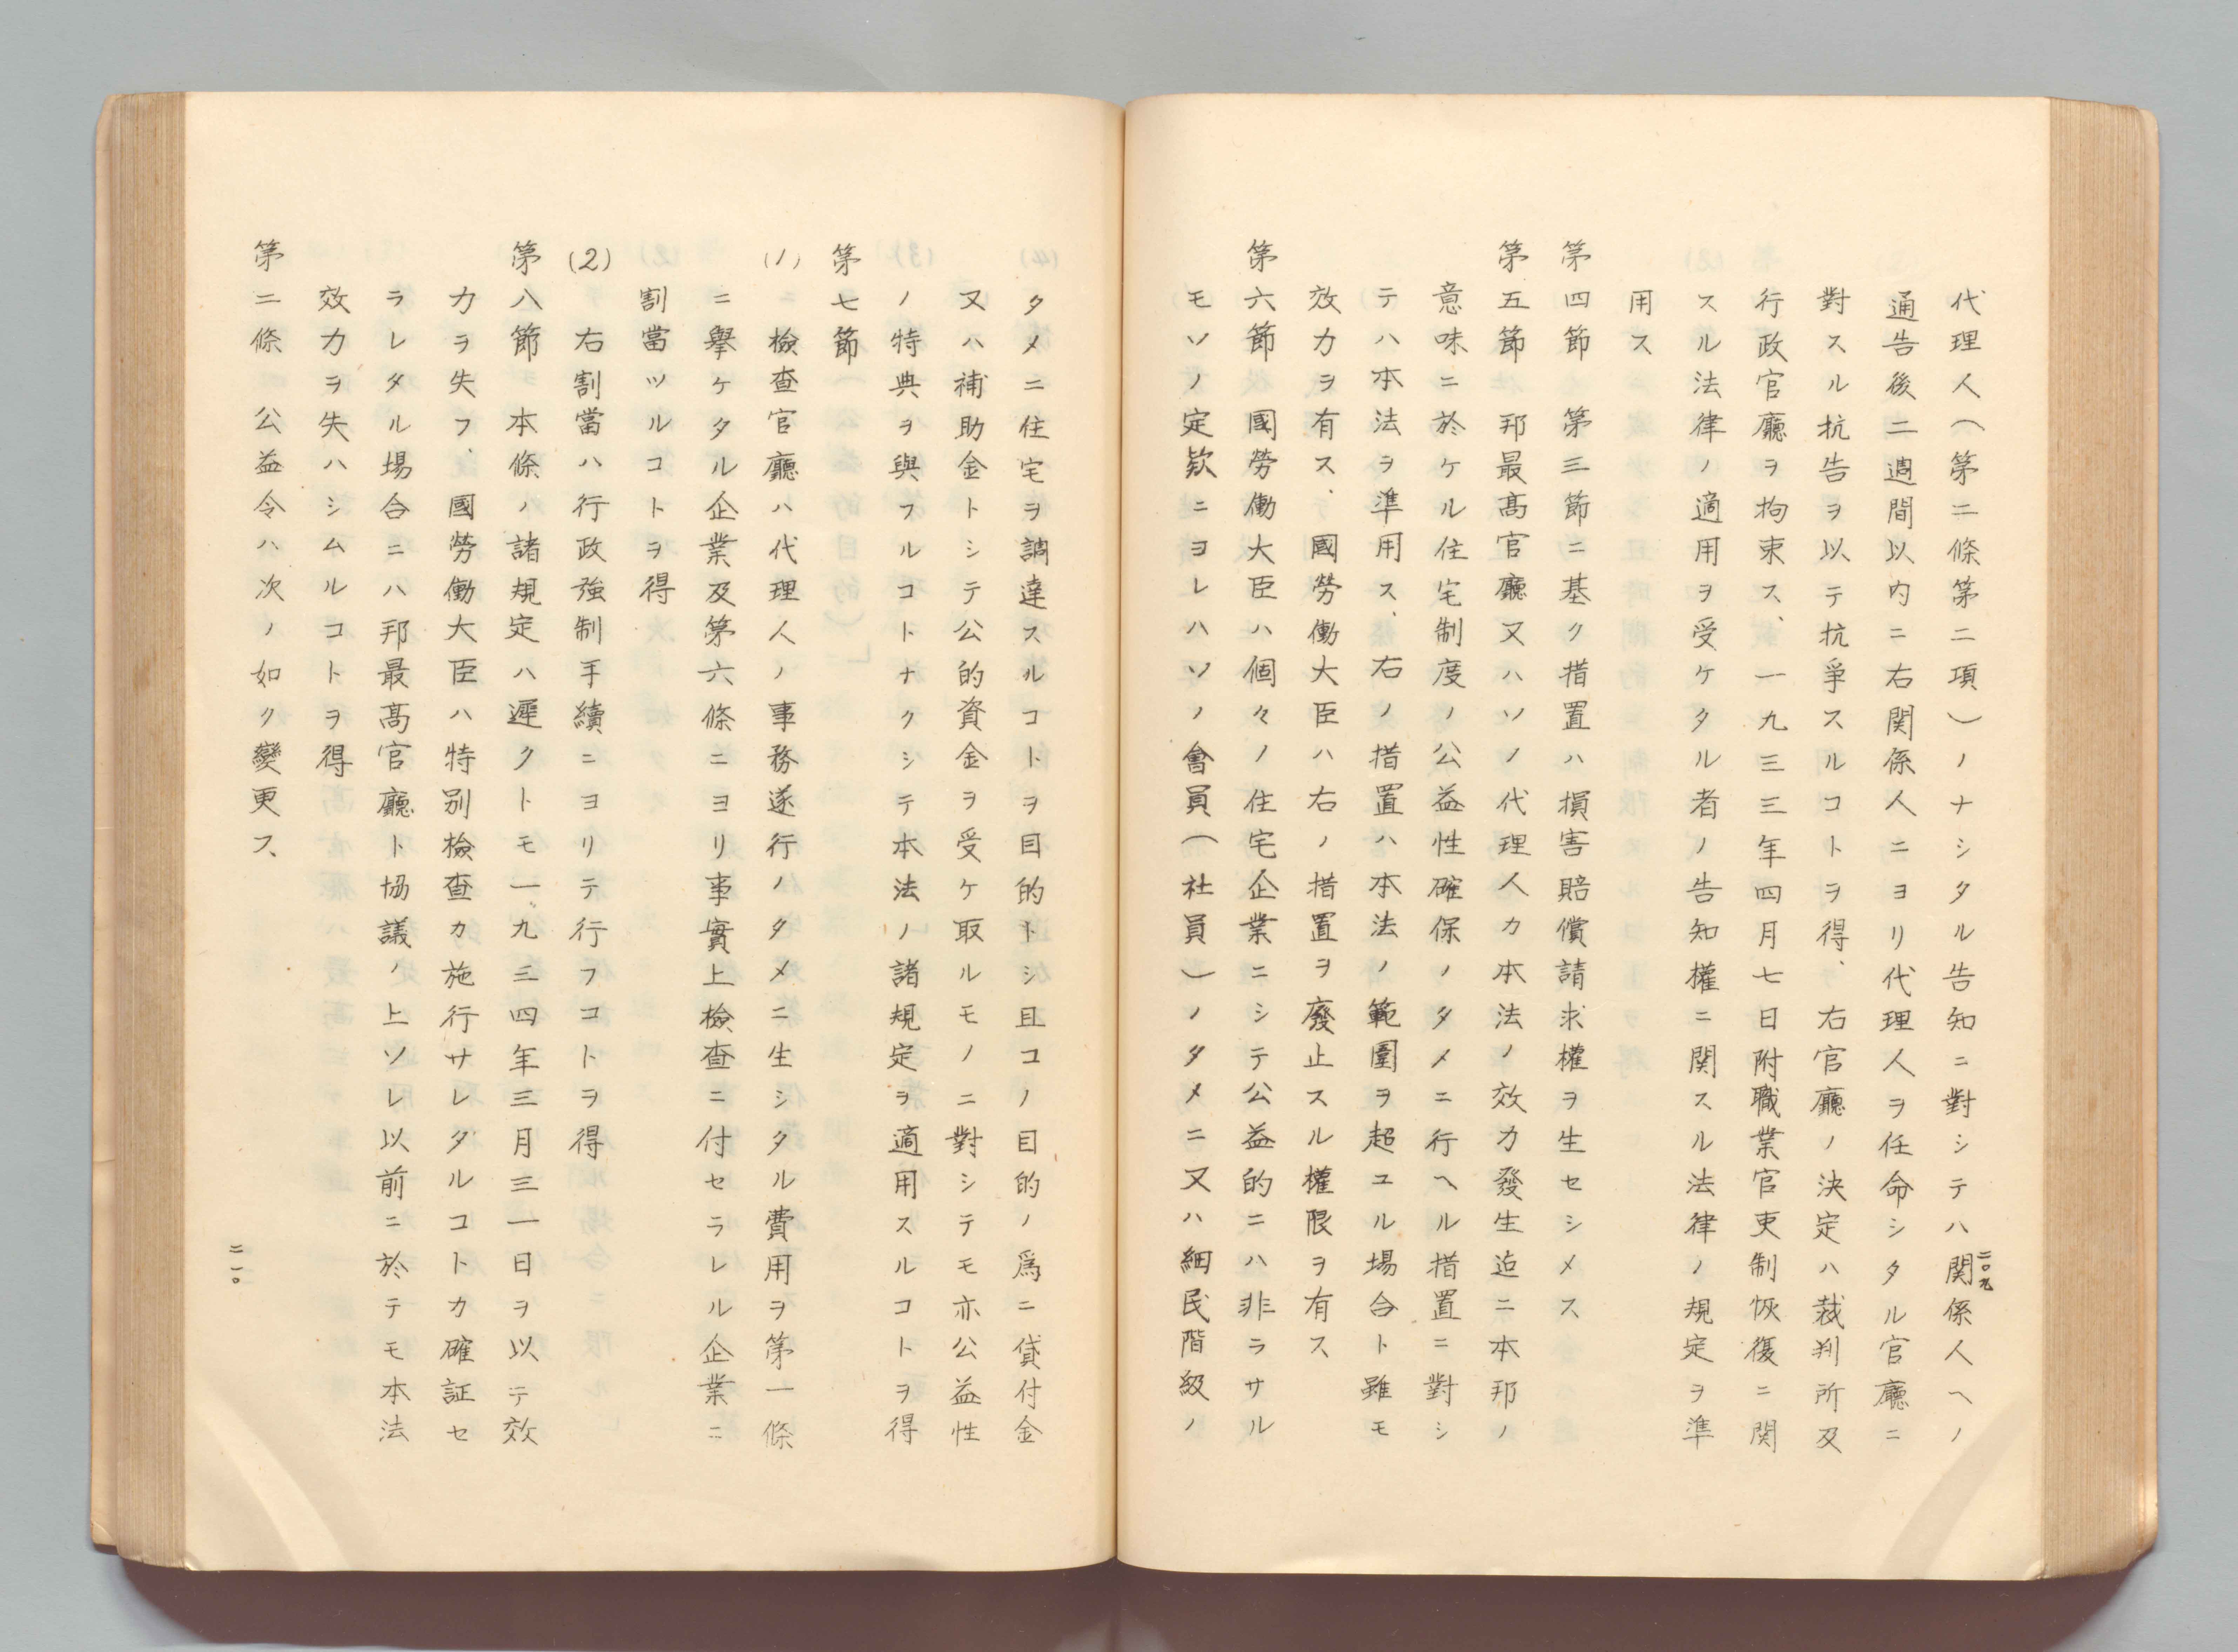 二〇九
代理人（第二條第二項）ノナシタル告知ニ對シテハ関係人ヘノ
通告後二週間以内ニ右関係人ニヨリ代理人ヲ任命シタル官廳ニ
對スル抗告ヲ以テ抗爭スルコトヲ得、右官廳ノ決定ハ裁判所及
行政官廳ヲ拘束ス、一九三三年四月七日附職業官吏制恢復ニ関
スル法律ノ適用ヲ受ケタル者ノ告知權ニ関スル法律ノ規定ヲ準
用ス
第四節　第三節ニ基ク措置ハ損害賠償請求權ヲ生セシメス
第五節　邦最高官廳又ハソノ代理人カ本法ノ效力發生迄ニ本邦ノ
意味ニ於ケル住宅制度ノ公益性確保ノタメニ行ヘル措置ニ對シ
テハ本法ヲ準用ス、右ノ措置ハ本法ノ範圍ヲ超ユル場合ト雖モ
效力ヲ有ス、國勞働大臣ハ右ノ措置ヲ廢止スル權限ヲ有ス
第六節　國勞働大臣ハ個々ノ住宅企業ニシテ公益的ニハ非ラサル
モソノ定欵ニヨレハソノ會員（社員）ノタメニ又ハ細民階級ノ
タメニ住宅ヲ調達スルコトヲ目的トシ且コノ目的ノ爲ニ貸付金
又ハ補助金トシテ公的資金ヲ受ケ取ルモノニ對シテモ亦公益性
ノ特典ヲ與フルコトナクシテ本法ノ諸規定ヲ適用スルコトヲ得
第七節
(1)　檢査官廳ハ代理人ノ事務遂行ノタメニ生シタル費用ヲ第一條
ニ擧ケタル企業及第六條ニヨリ事實上檢査ニ付セラレル企業ニ
割當ツルコトヲ得
(2)　右割當ハ行政強制手續ニヨリテ行フコトヲ得
第八節　本條ノ諸規定ハ遲クトモ一九三四年三月三一日ヲ以テ效
力ヲ失フ、國勞働大臣ハ特別檢査カ施行サレタルコトカ確証セ
ラレタル場合ニハ邦最高官廳ト協議ノ上ソレ以前ニ於テモ本法
效力ヲ失ハシムルコトヲ得
第二條　公益令ハ次ノ如ク變更ス、
二一〇